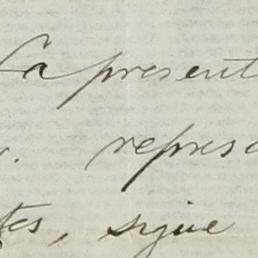 La present
. represe
tes, sigue